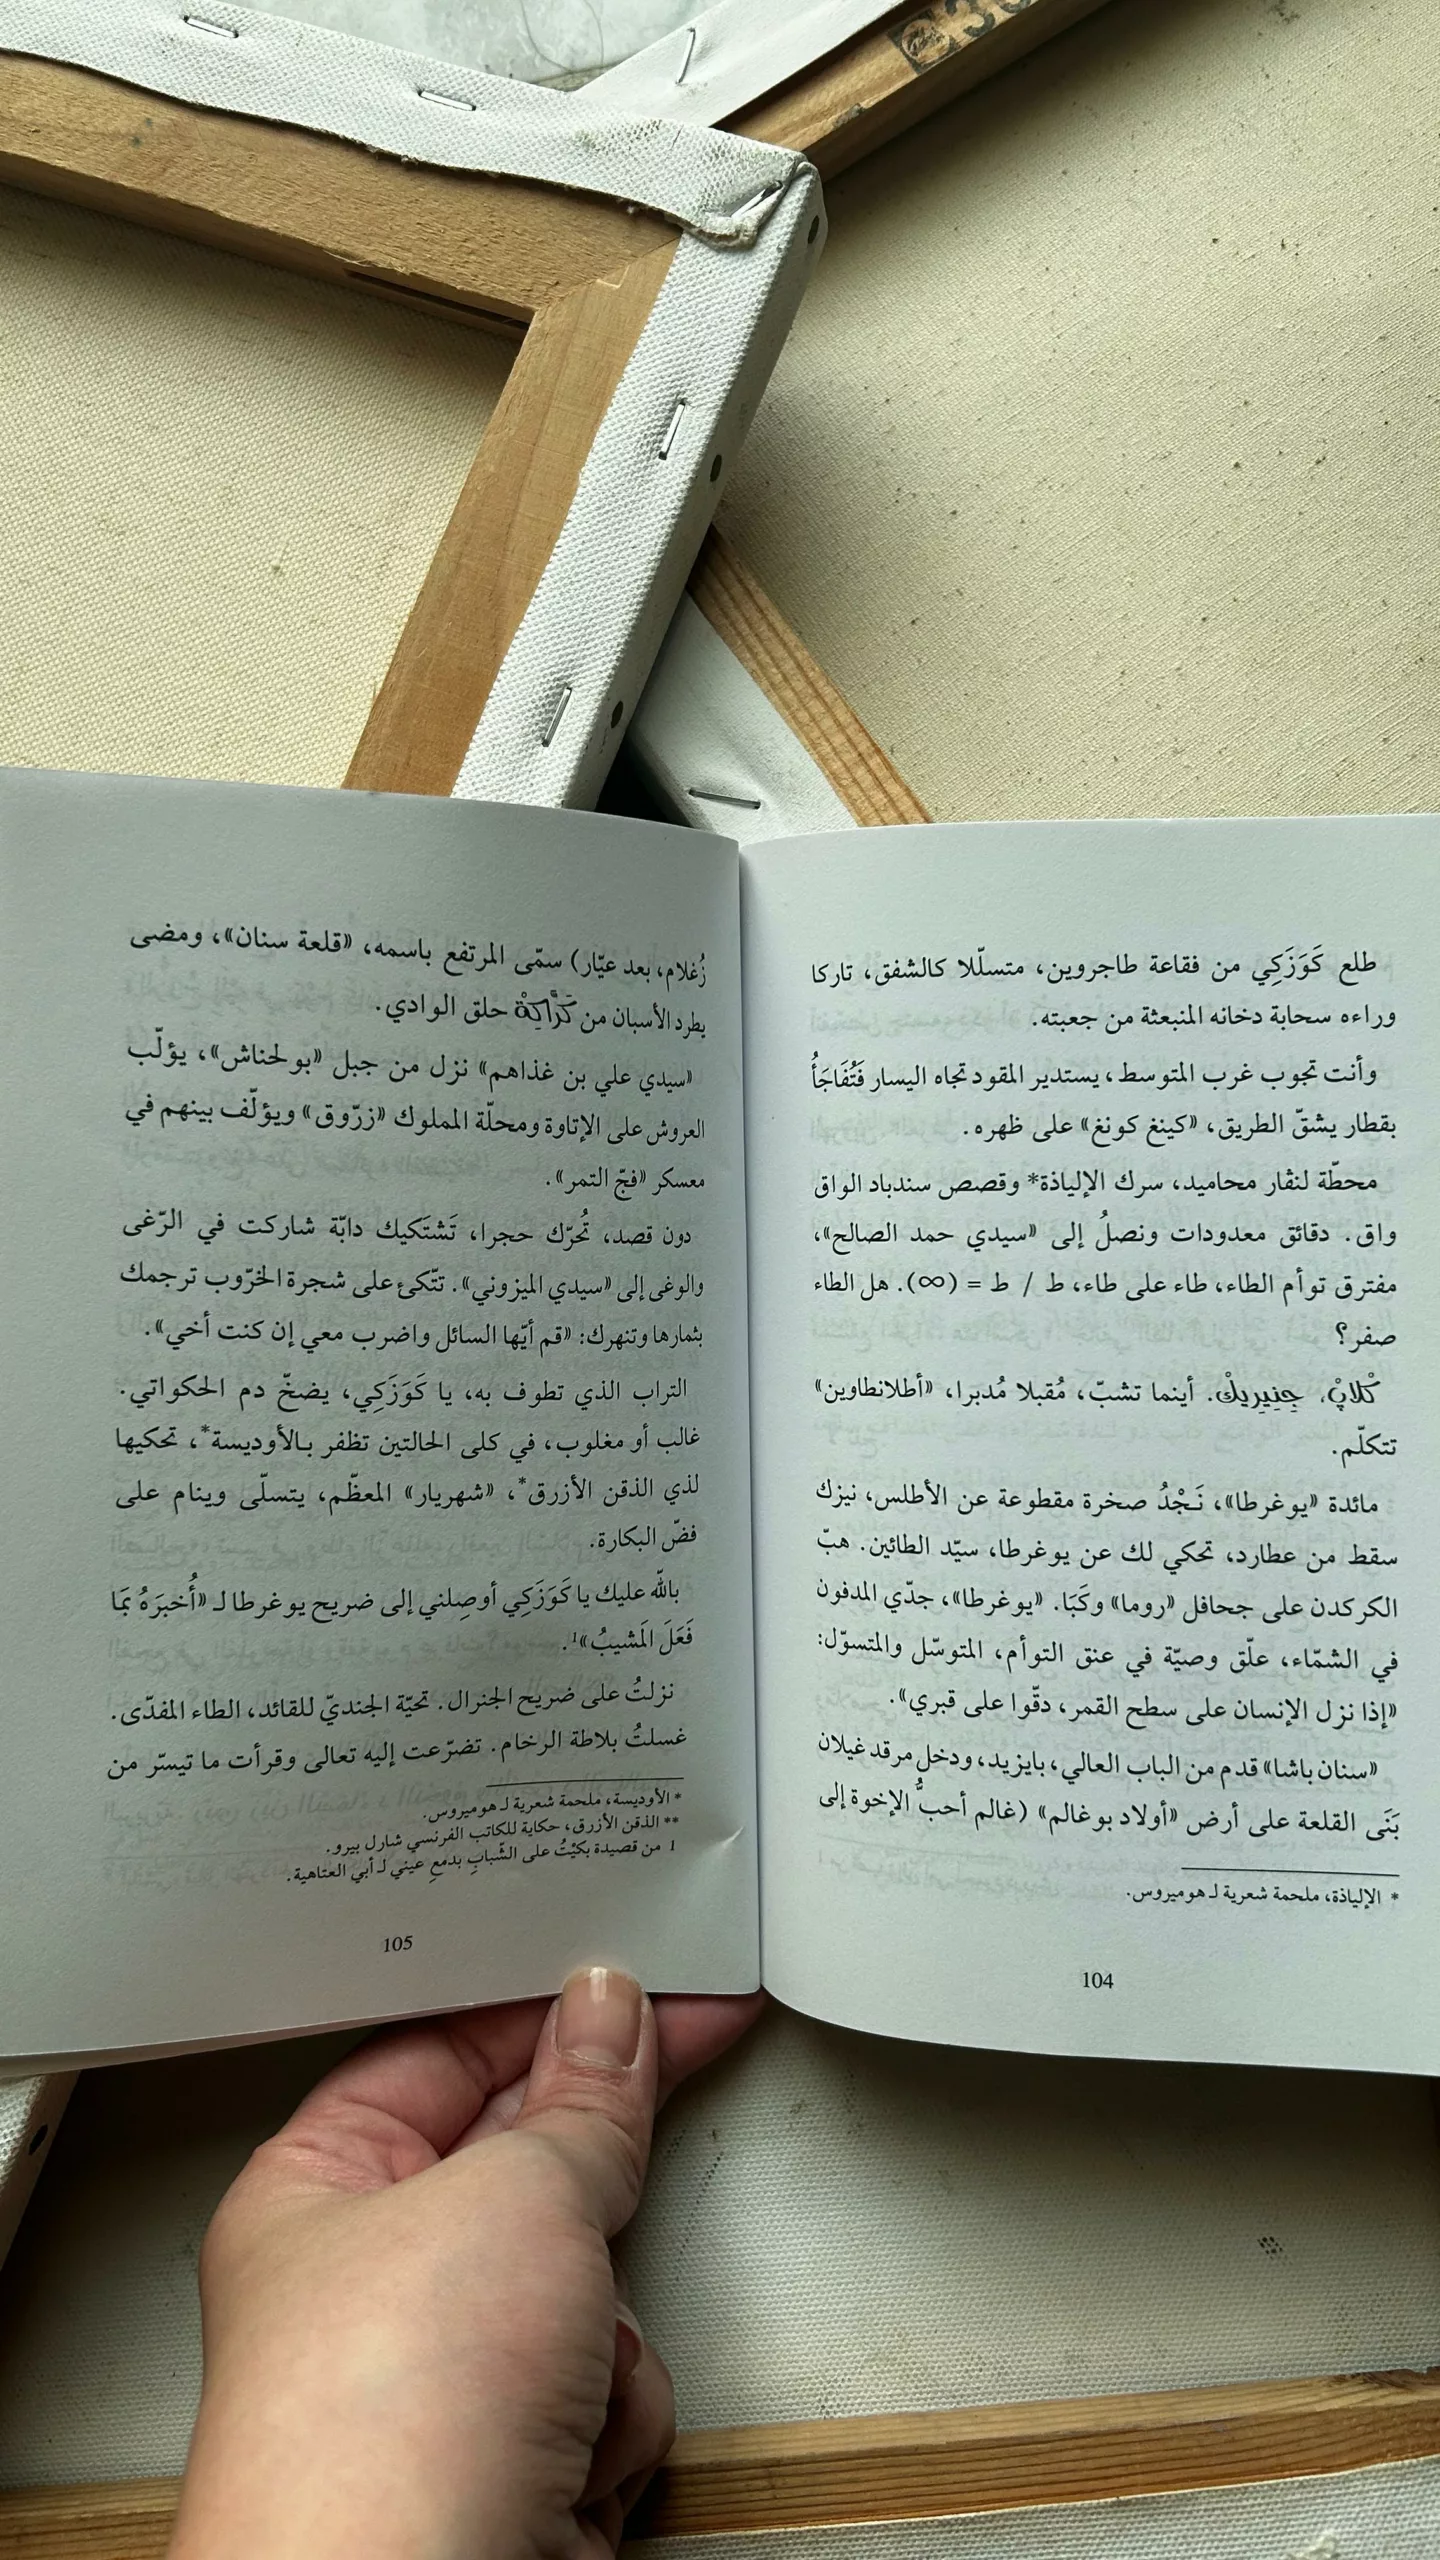 طلع كَوَزَكِي من فقاعة طاجروين، متسلّلا كالشفق، تاركا
وراءه سحابة دخانه المنبعثة من جعبته.
وأنت تجوب غرب المتوسط، يستدير المقود تجاه اليسار فَتُفَاجَأُ
بقطار يشقّ الطريق، «كينغ كونغ» على ظهره.
محطّة لنقار محاميد، سرك الإلياذة* وقصص سندباد الواق
واق. دقائق معدودات ونصلُ إلى «سيدي حمد الصالح»،
مفترق توأم الطاء، طاء على طاء، ط / ط = (∞). هل الطاء
صفر؟
كْلَابْ، جِنِيرِيكْ. أينما تشبّ، مُقبلا مُدبرا، «أطلانطاوين»
تتكلّم.
مائدة «يوغرطا»، نَجْدُ صخرة مقطوعة عن الأطلس، نيزك
سقط من عطارد، تحكي لك عن يوغرطا، سيّد الطائين. هبّ
الكركدن على جحافل «روما» وكَبَا. «يوغرطا»، جدّي المدفون
في الشمّاء، علّق وصيّة في عنق التوأم، المتوسّل والمتسوّل:
«إذا نزل الإنسان على سطح القمر، دقّوا على قبري».
«سنان باشا» قدم من الباب العالي، بايزيد، ودخل مرقد غيلان
بَنَى القلعة على أرض «أولاد بوغالم» (غالم أحبُّ الإخوة إلى
* الإلياذة، ملحمة شعرية لـ هوميروس.
104
زُغلام، بعد عيّار) سمّى المرتفع باسمه، «قلعة سنان»، ومضى
يطرد الأسبان من كَرَّاكَةْ حلق الوادي.
«سيدي علي بن غذاهم» نزل من جبل «بولحناش»، يؤلّب
العروش على الإتاوة ومحلّة المملوك «زرّوق» ويؤلّف بينهم في
معسكر «فجّ التمر».
دون قصد، تُحرّك حجرا، تَشتَكيك دابّة شاركت في الرّغى
والوغى إلى «سيدي الميزوني». تتّكئ على شجرة الخرّوب ترجمك
بثمارها وتنهرك: «قم أيّها السائل واضرب معي إن كنت أخي».
التراب الذي تطوف به، يا كَوَزَكِي، يضخّ دم الحكواتي.
غالب أو مغلوب، في كلى الحالتين تظفر بـالأوديسة*، تحكيها
لذي الذقن الأزرق*، «شهريار» المعظّم، يتسلّى وينام على
فضّ البكارة.
بالله عليك يا كَوَزَكِي أوصِلني إلى ضريح يوغرطا لـ «أُخبرَهُ بمَا
فَعَلَ المَشيبُ»1.
نزلتُ على ضريح الجنرال. تحيّة الجنديّ للقائد، الطاء المفدّى.
غسلتُ بلاطة الرخام. تضرّعت إليه تعالى وقرأت ما تيسّر من
* الأوديسة، ملحمة شعرية لـ هوميروس.
** الذقن الأزرق، حكاية للكاتب الفرنسي شارل بيرو.
1 من قصيدة بكيْتُ على الشّبابِ بدمعِ عيني لـ أبي العتاهية.
105